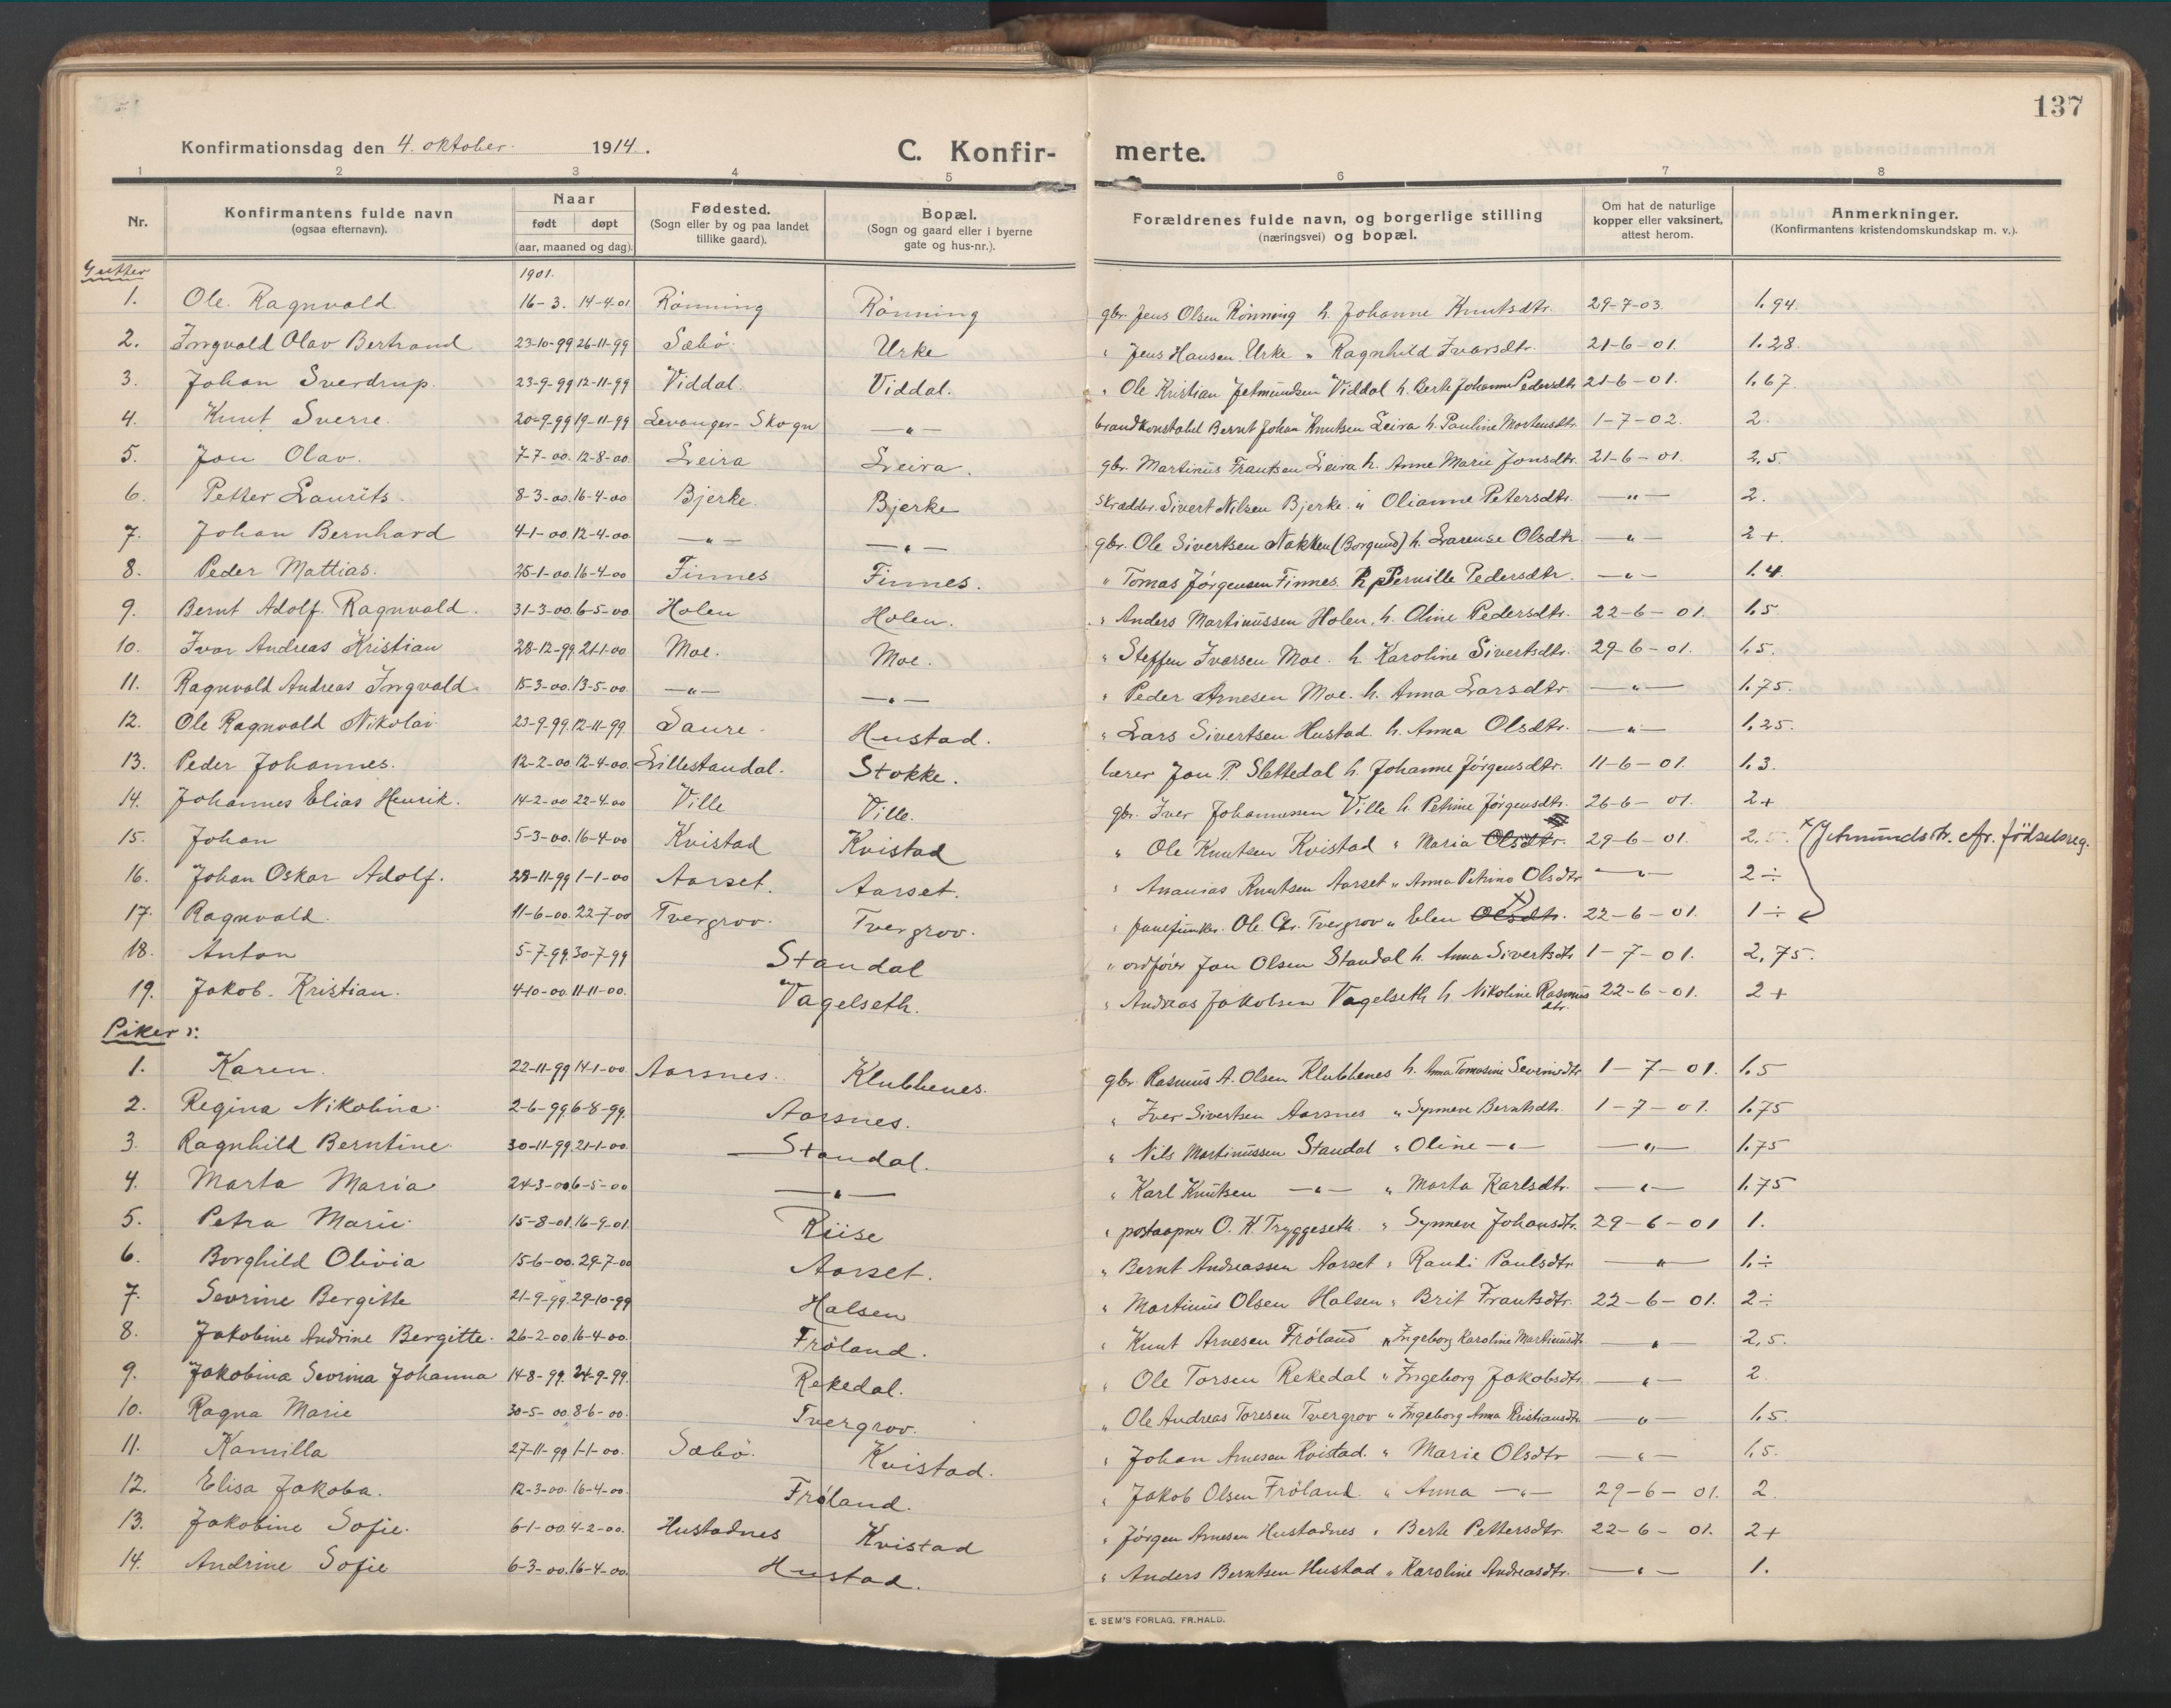 137
Konfirmationsdag den 4. oktober. 1914.
C. Konfir- merte.
1 2 3 4 5 6 7 8
Nr.
Konfirmantens fulde navn
(ogsaa efternavn).
Naar
født døpt
(aar, maaned og dag).
Fødested.
(Sogn eller by og paa landet
tillike gaard).
Bopæl.
(Sogn og gaard eller i byerne
gate og hus-nr.).
Forældrenes fulde navn, og borgerlige stilling
(næringsvei) og bopæl.
Om hat de naturlige
kopper eller vaksinert,
attest herom.
Anmerkninger.
(Konfirmantens kristendomskundskap m. v.).
Gutter
1901.
1. Ole Ragnvald 16-3. 14-4-01 Rönning Rönning gbr. Jens Olsen Rönning h. Johanne Knutsdtr. 29-7-03. 1.94.
2. Ingvald Olav Bertrand 23-10-99 26-11-99 Sæbö. Urke " Jens Hansen Urke " Ragnhild Ivarsdtr. 21-6-01. 1.28.
3. Johan Sverdrup. 23-9-99 12-11-99 Viddal. Viddal. " Ole Kristian Jetmundsen Viddal h. Berte Johanne Pedersdtr 21-6-01. 1.67.
4. Knut Sverre. 20-9-99 19-11-99 Levanger-Skogn —"— brandkonstabel Bernt Johan Knutsen Leira h. Pauline Mortensdtr. 1-7-02. 2.
5. Jon Olav. 7-7-00. 12-8-00. Leira Leira. gbr. Martinus Frantsen Leira h. Anne Marie Jonsdtr. 21-6-01. 2,5.
6. Petter Laurits. 8-3-00. 16-4-00 Bjerke. Bjerke skrædder. Sivert Nilsen Bjerke. " Olianne Petersdtr. —"— 2.
7. Johan Bernhard 4-1-00. 12-4-00. —"— —"— gbr. Ole Sivertsen Nakken (Borgund) h. Larense Olsdtr. —"— 2+.
8. Peder Mattias. 25-1-00. 16-4-00 Finnes Finnes. " Tomas Jörgensen Finnes. h. Pernille Pedersdtr. —"— 1.4.
9. Bernt Adolf Ragnvald. 31-3-00. 6-5-00 Holen Holen. " Anders Martinussen Holen, h. Oline Pedersdtr. 22-6-01. 1.5.
10. Ivar Andreas Kristian 28-12-99. 21-1-00 Moe. Moe. " Steffen Ivarsen Moe. h. Karoline Sivertsdtr. 29-6-01. 1.5.
11. Ragnvald Andreas Ingvald. 15-3-00. 13-5-00. —"— —"— " Peder Arnesen Moe. h. Anna Larsdtr. —"— 1.75.
12. Ole Ragnvald Nikolai 23-9-99. 12-11-99. Saure. Hustad. " Lars Sivertsen Hustad. h. Anna Olsdtr. —"— 1.25.
13. Peder Johannes. 12-2-00. 12-4-00. Lillestandal. Stokke. lærer Jon P. Slettedal h. Johanne Jörgensdtr. 11-6-01. 1.3.
14. Johannes Elias Henrik. 14-2-00 22-4-00 Ville Ville. gbr. Iver Johannessen Ville h. Petrine Jörgensdtr. 26-6-01. 2+
15. Johan 5-3-00. 16-4-00 Kvistad Kvistad " Ole Knutsen Kvistad " Maria Olsdtr. 29-6-01. 2,5. x/Jetmundsdtr. cfr. födselsreg.
16. Johan Oskar Adolf. 28-11-99 1-1-00 Aarset. Aarset. " Ananias Knutsen Aarset " Anna Petrine Olsdtr —"— 2÷
17. Ragnvald. 11-6-00. 22-7-00 Tvergrov. Tvergrov. " fanejunker. Ole Chr. Tvergrov " Elen Olsdtr. x) 22-6-01. 1÷
18. Anton 5-7-99. 30-7-99 Standal " ordförer Jon Olsen Standal h. Anna Sivertsdtr 1-7-01. 2,75.
19. Jakob Kristian. 4-10-00. 11-11-00. Vagelseth. " Andreas Jakobsen Vagelseth h. Nikoline Rasmus dtr. 22-6-01. 2+
Piker:
1. Karen. 22-11-99 14-1-00. Aarsnes. Klubbenes. gbr. Rasmus A. Olsen Klubbenes h. Anna Tomasine Severinsdtr 1-7-01. 1.5
2. Regina Nikolina. 2-6-99 6-8-99. Aarsnes. " Iver Sivertsen Aarsnes " Synneve Berntsdtr. 1-7-01. 1.75
3. Ragnhild Berntine. 30-11-99. 21-1-00. Standal. " Nils Martinussen Standal " Oline —"— —"— 1.75
4. Marta Maria 24-3-00 6-5-00 —"— " Karl Knutsen —"— " Marta Karlsdtr. —"— 1.75
5. Petra Marie. 15-8-01. 16-9-01. Riise " postaapner O. K. Tryggeseth. " Synneve Johansdtr. 29-6-01 1.
6. Borghild Olivia 15-6-00. 29-7-00 Aarset. " Bernt Andreassen Aarset " Randi Paulsdtr —"— 1.÷
7. Sevrine Bergitte 21-9-99. 29-10-99 Halsen " Martinus Olsen Halsen " Brit Frantsdtr. 22-6-01. 2÷
8. Jakobine Andrine Bergitte. 26-2-00. 16-4-00. Fröland. " Knut Arnesen Fröland " Ingeborg Karoline Martinusdtr. —"— 2,5.
9. Jakobina Sevrina Johanna 14-8-99. 24-9-99. Rekedal. " Ole Torsen Rekedal " Ingeborg Jakobsdtr. —"— 2.
10. Ragna Marie 30-5-00. 8-6-00. Tvergrov. " Ole Andreas Toresen Tvergrov " Ingeborg Anna Kristiansdtr. —"— 1.5.
11. Kamilla 27-11-99 1-1-00. Sæbö. Kvistad. " Johan Arnesen Kvistad. " Marie Olsdtr —"— 1.5.
12. Elisa Jakoba. 12-3-00. 16-4-00. Fröland. " Jakob Olsen Fröland. " Anna —"— 29-6-01. 2.
13. Jakobine Sofie. 6-1-00. 4-2-00. Hustadnes Kvistad " Jörgen Arnesen Hustadnes " Berte Pettersdtr. 22-6-01. 2+
14. Andrine Sofie 6-3-00. 16-4-00. Hustad. " Anders Berntsen Hustad " Karoline Andreasdtr. —"— 1.
E. SEM'S FORLAG, FR.HALD.